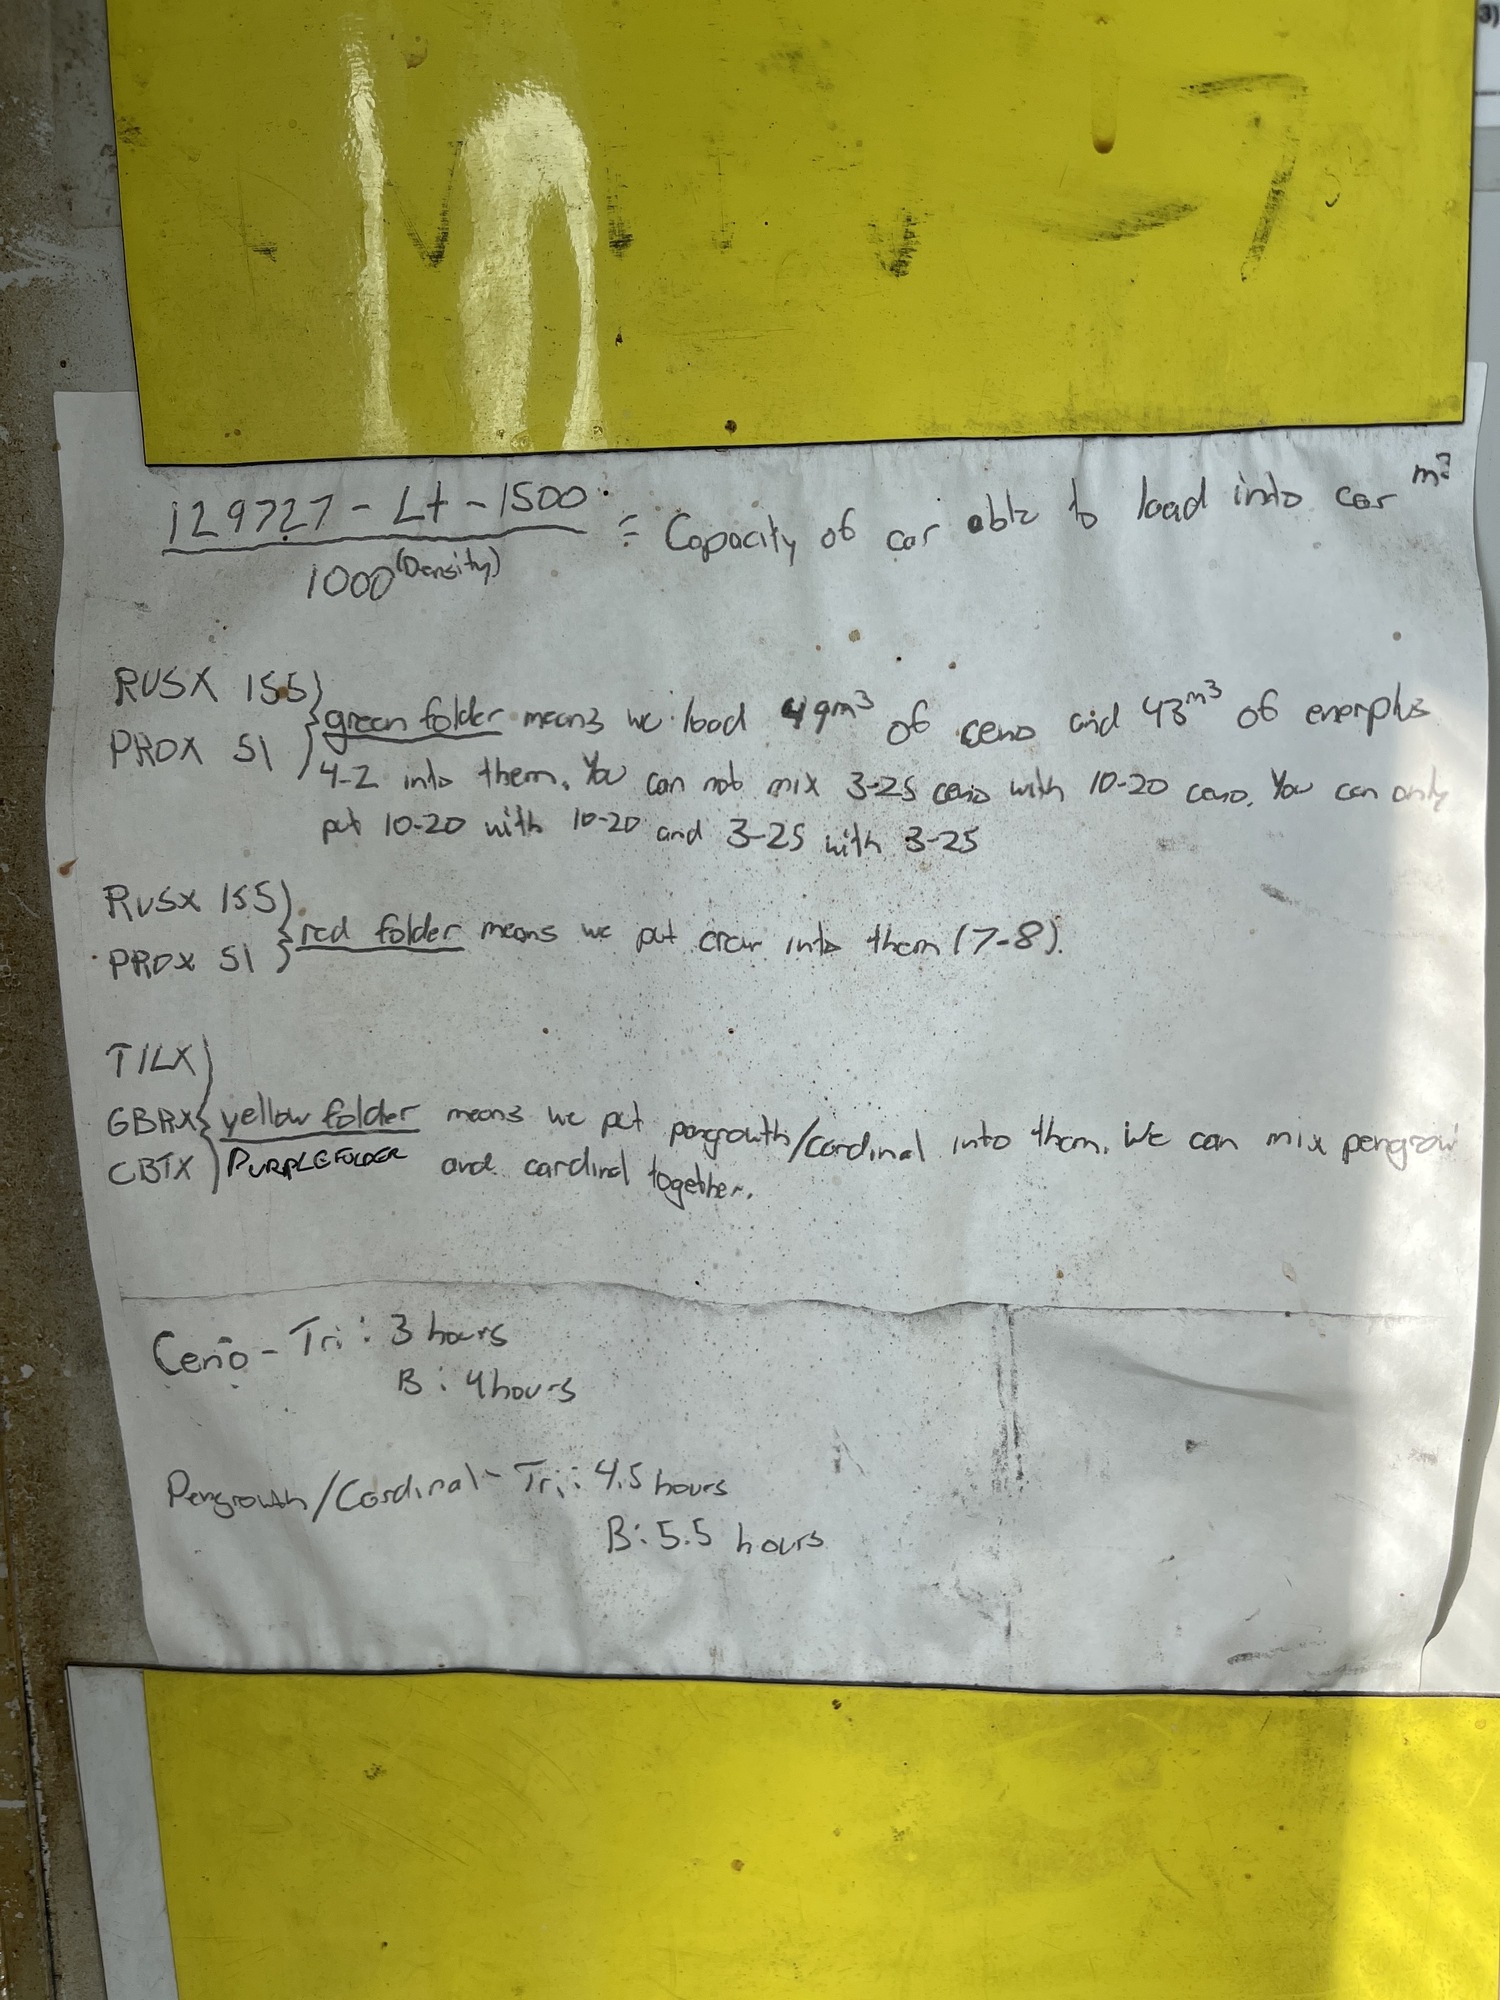 129727 - Lt - 1500 = Capacity of car able to load into car m³
1000(Density)
RUSX 155
PROX 51
green folder means we load 49m³ of ceno and 43m³ of enerplus
4-2 into them. You can not mix 3-25 ceno with 10-20 ceno. You can only
put 10-20 with 10-20 and 3-25 with 3-25
RUSX 155
PROX 51
red folder means we put crew into them (7-8).
TILX
GBRX
CBTX
yellow folder means we put pengrowth/cardinal into them. We can mix pengrow
PURPLE FOLDER and cardinal together.
Ceno - Tri: 3 hours
B: 4 hours
Pengrowth/Cardinal - Tri: 4.5 hours
B: 5.5 hours